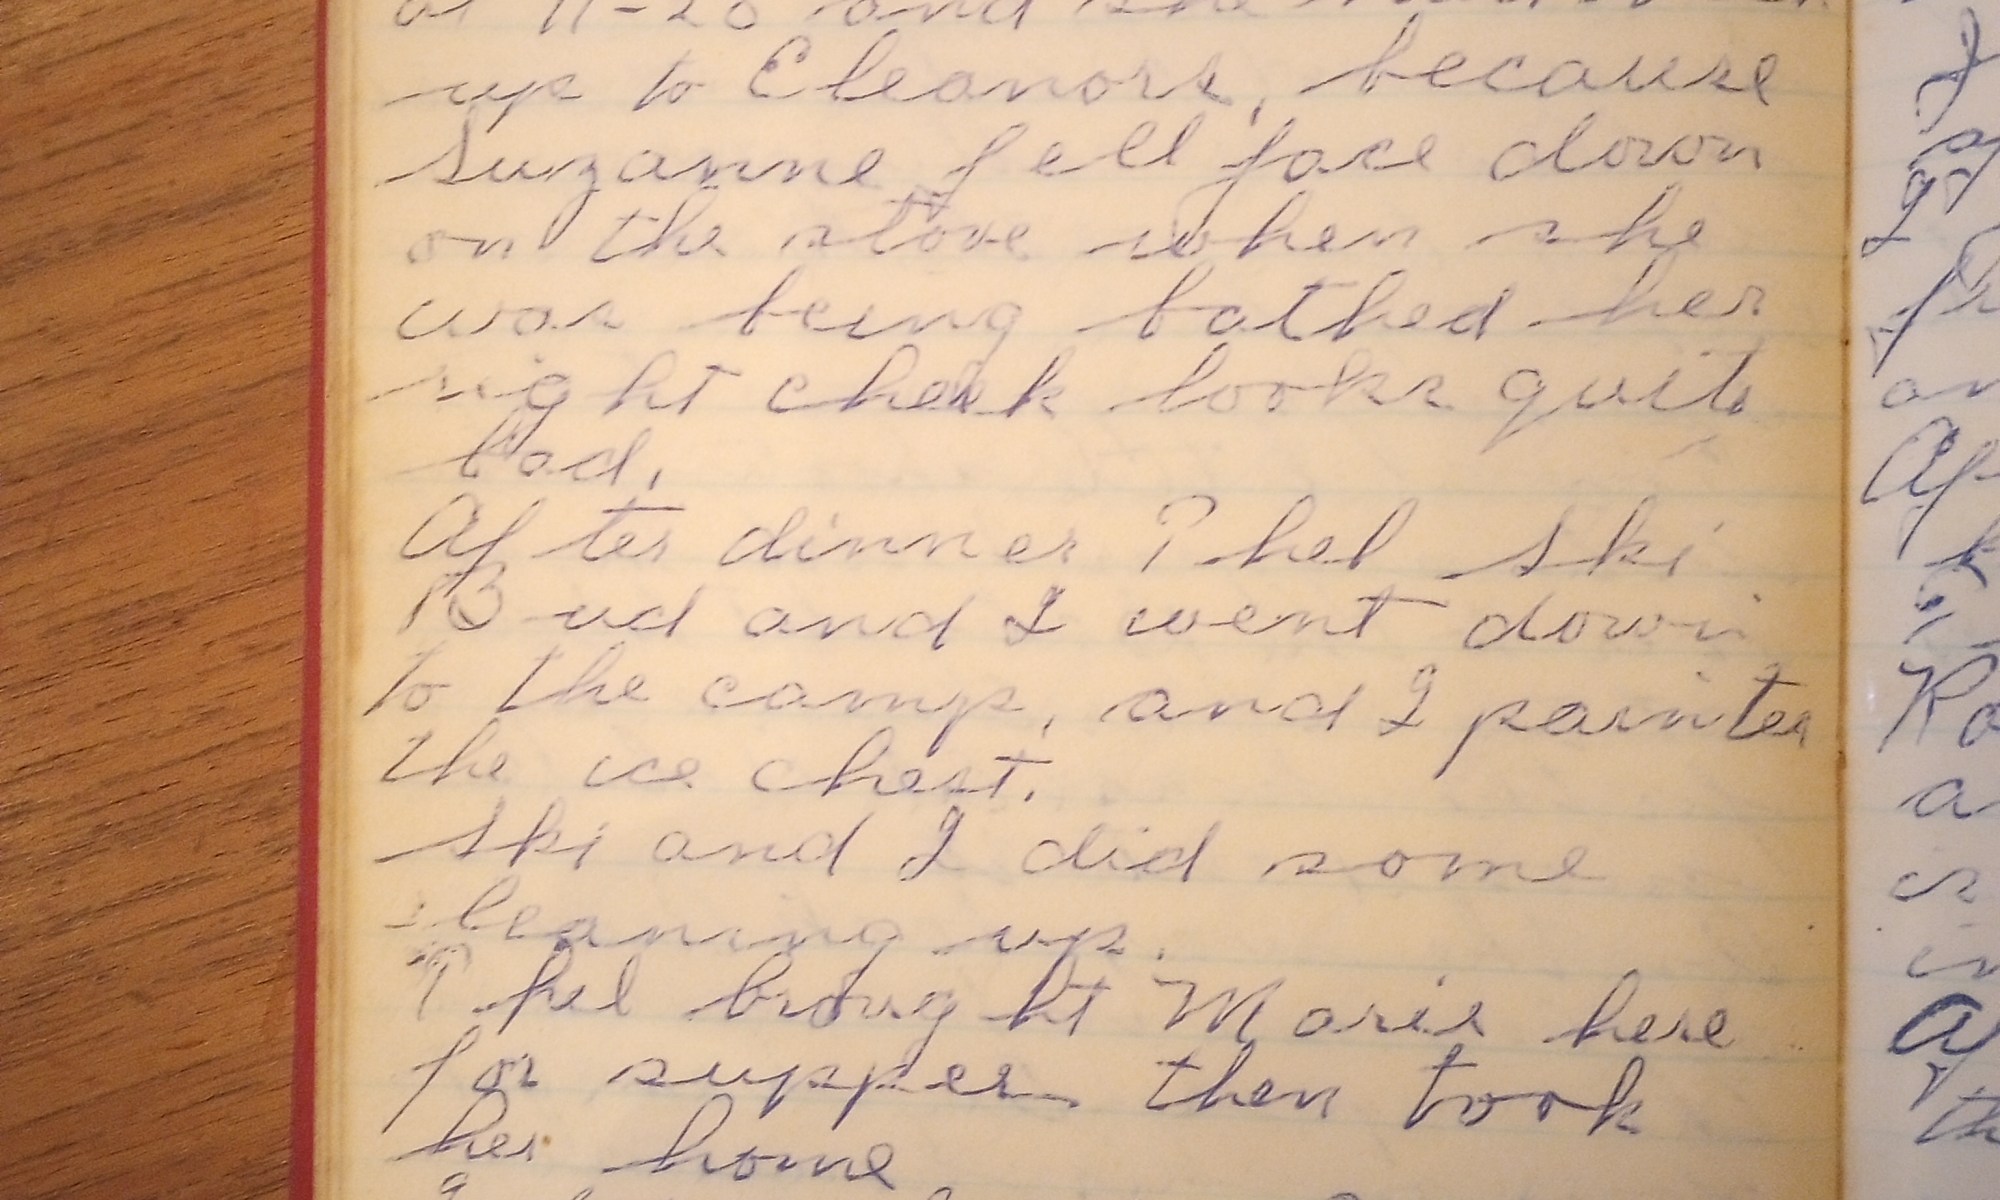 at 11-20 and she
up to Eleanors, because
Suzanne fell face down
on the stove when she
was being bathed her
right cheek looks quite
bad.
After dinner Phel Ski
Bud and I went down
to the camp, and I painted
the ice chest.
Ski and I did some
cleaning up.
Phel brought Marie here
for supper then took
her home